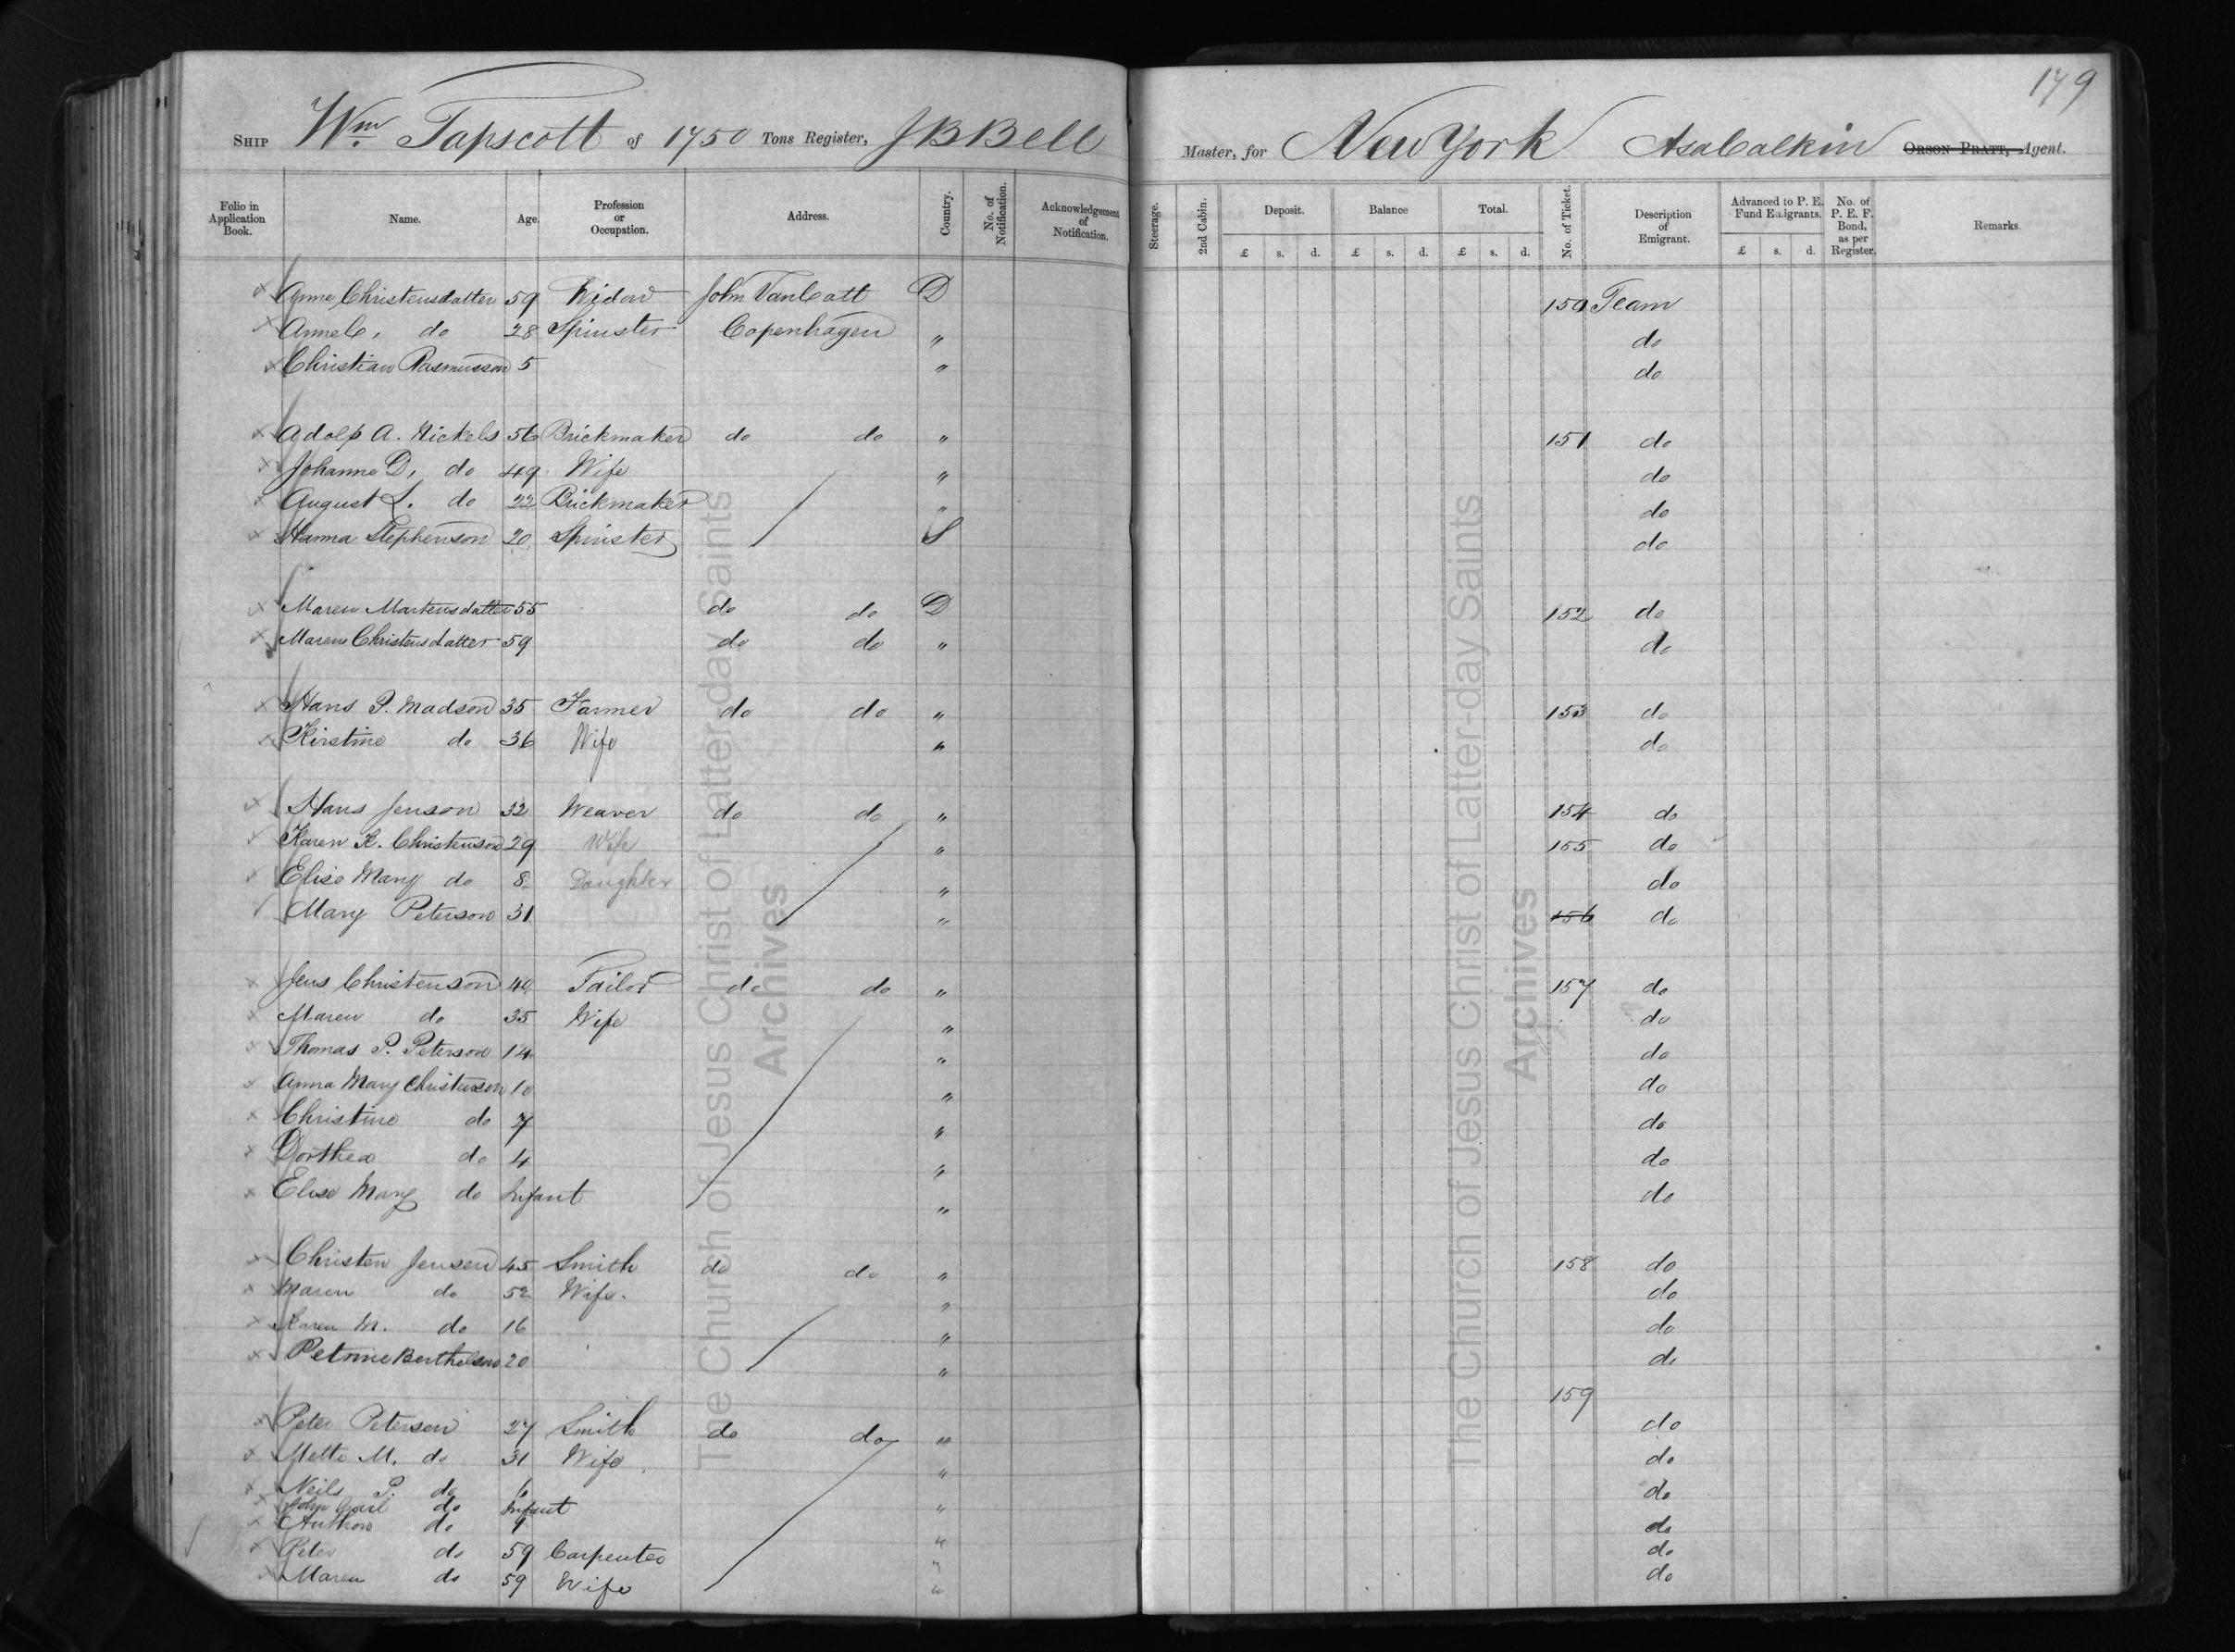 179
SHIP Wm. Tapscott of 1750 Tons Register, J B Bell Master, for New York Asa Calkin ORSON PRATT, Agent.
Folio in Application Book. Name. Age. Profession or Occupation. Address. Country. No. of Notification. Acknowledgement of Notification. Steerage. 2nd Cabin. Deposit. Balance Total. No. of Ticket. Description of Emigrant. Advanced to P. E. Fund Emigrants. No. of P. E. F. Bond, as per Register. Remarks
£ s. d. £ s. d. £ s. d. £ s. d.
Anne Christensdatter 59 Widow John VanCott D 150 Team
Anne C. do 28 Spinster Copenhagen " do
Christian Rasmusson 5 " do
Adolp A. Nickels 56 Brickmaker do do " 151 do
Johanne D. do 49 Wife " do
August L. do 22 Brickmaker " do
Hanna Stephenson 20 Spinster S do
Maren Martensdatter 55 do do D 152 do
Maren Christensdatter 59 do do " do
Hans P. Madson 35 Farmer do do " 153 do
Kirstine do 36 Wife " do
Hans Jenson 32 Weaver do do " 154 do
Karen K. Christenson 29 Wife " 155 do
Elise Mary do 8 Daughter " do
Mary Peterson 31 " 156 do
Jens Christenson 40 Tailor do do " 157 do
Maren do 35 Wife " do
Thomas P. Peterson 14 " do
Anna Mary Christenson 10 " do
Christine do 7 " do
Dorthea do 4 " do
Elise Mary do Infant " do
Christen Jensen 45 Smith do do " 158 do
Maren do 52 Wife. " do
Karen M. do 16 " do
Petrine Berthelsen 20 " do
159
Peter Petersen 27 Smith do do " do
Mette M. do 31 Wife " do
Neils P. do 6 " do
John Carl do Infant
Anthon do " do
Peter do 59 Carpenter " do
Maren do 59 Wife " do
The Church of Jesus Christ of Latter-day Saints
Archives
The Church of Jesus Christ of Latter-day Saints
Archives